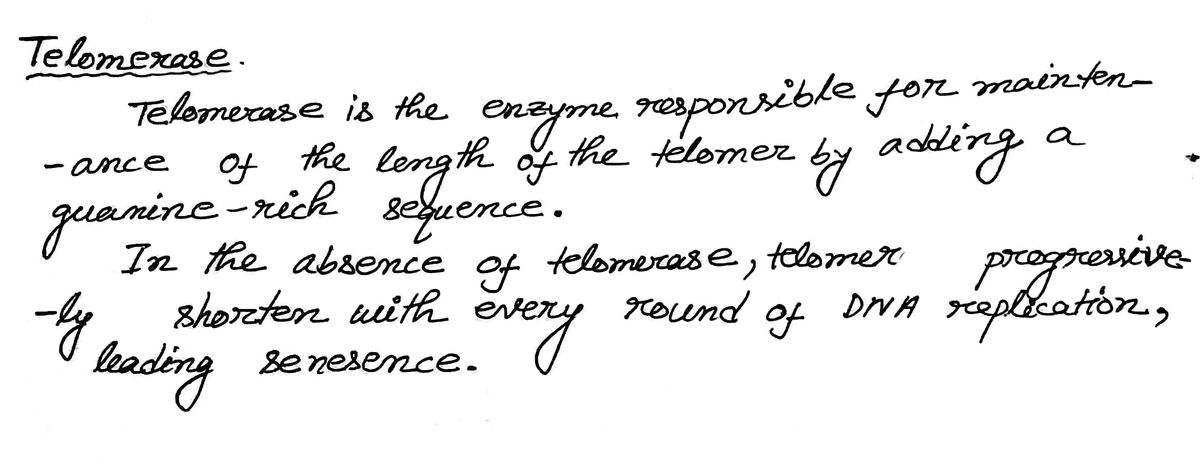 Telomerase.
Telomerase is the enzyme responsible for mainten-
-ance of the length of the telomer by adding a
guanine-rich sequence.
In the absence of telomerase, telomer progressive-
-ly shorten with every round of DNA replication,
leading senesence.